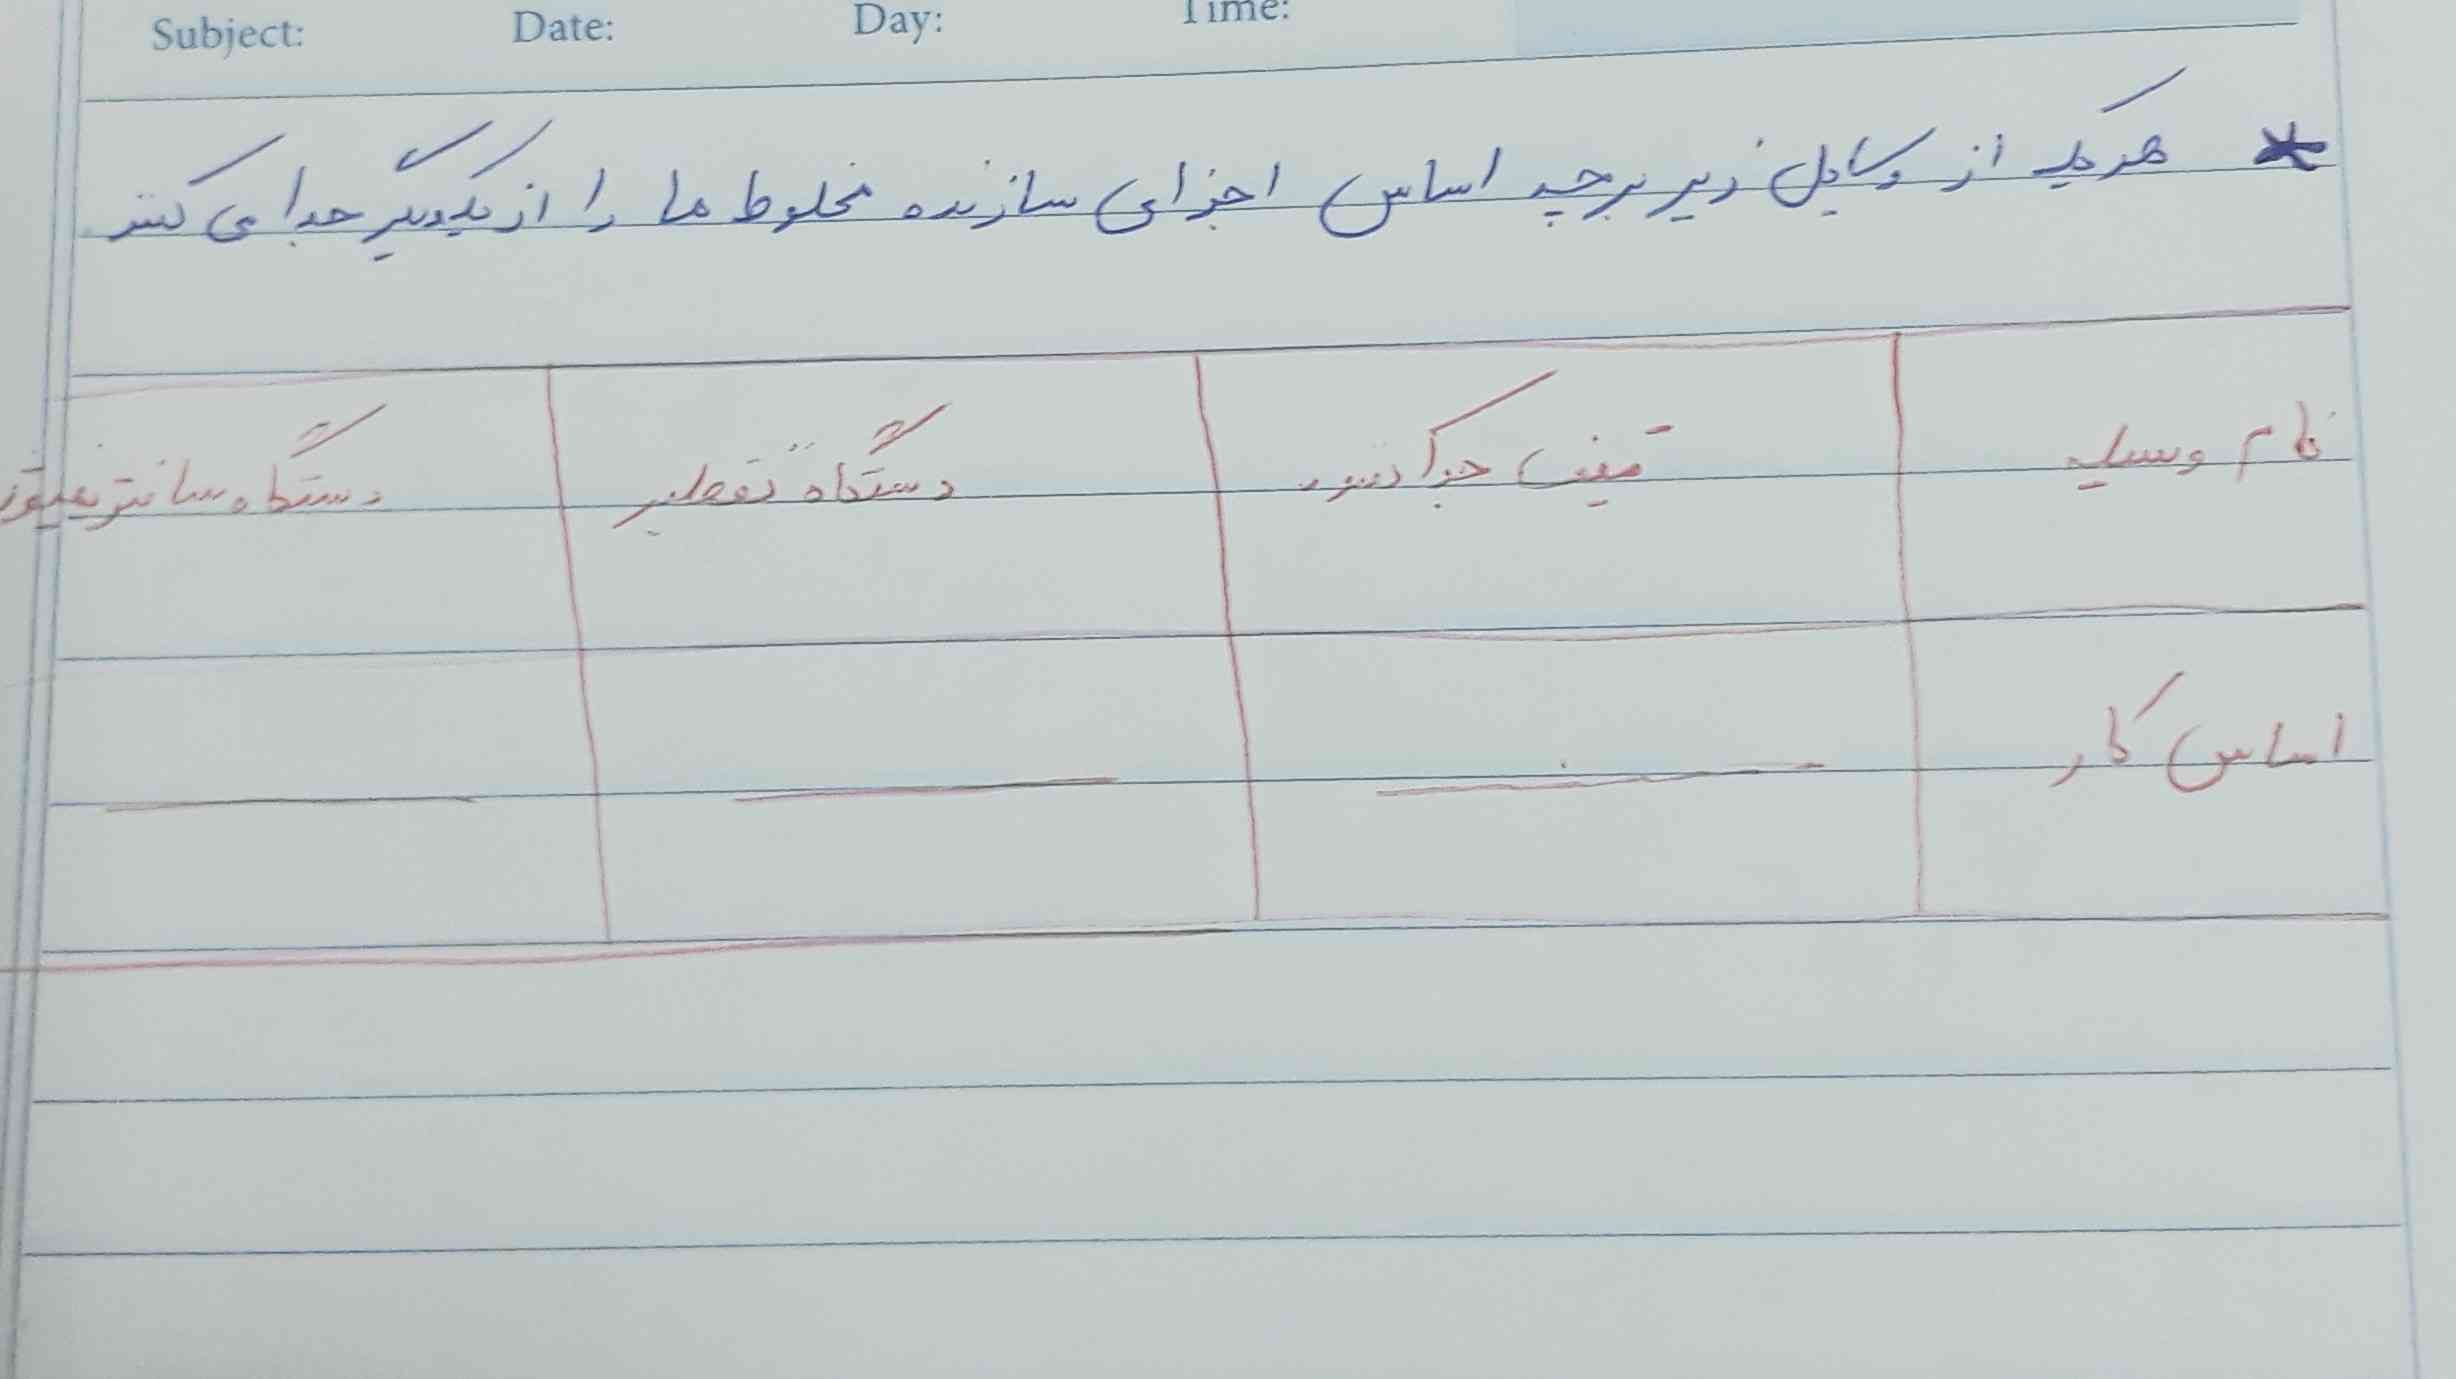 Subject: Date: Day: Time:
* هر یک از وسایل زیر بر چه اساس اجزای سازنده مخلوط ها را از یکدیگر جدا می کنند
نام وسیله قیف جدا کننده دستگاه تقطیر دستگاه سانتریفیوژ
اساس کار